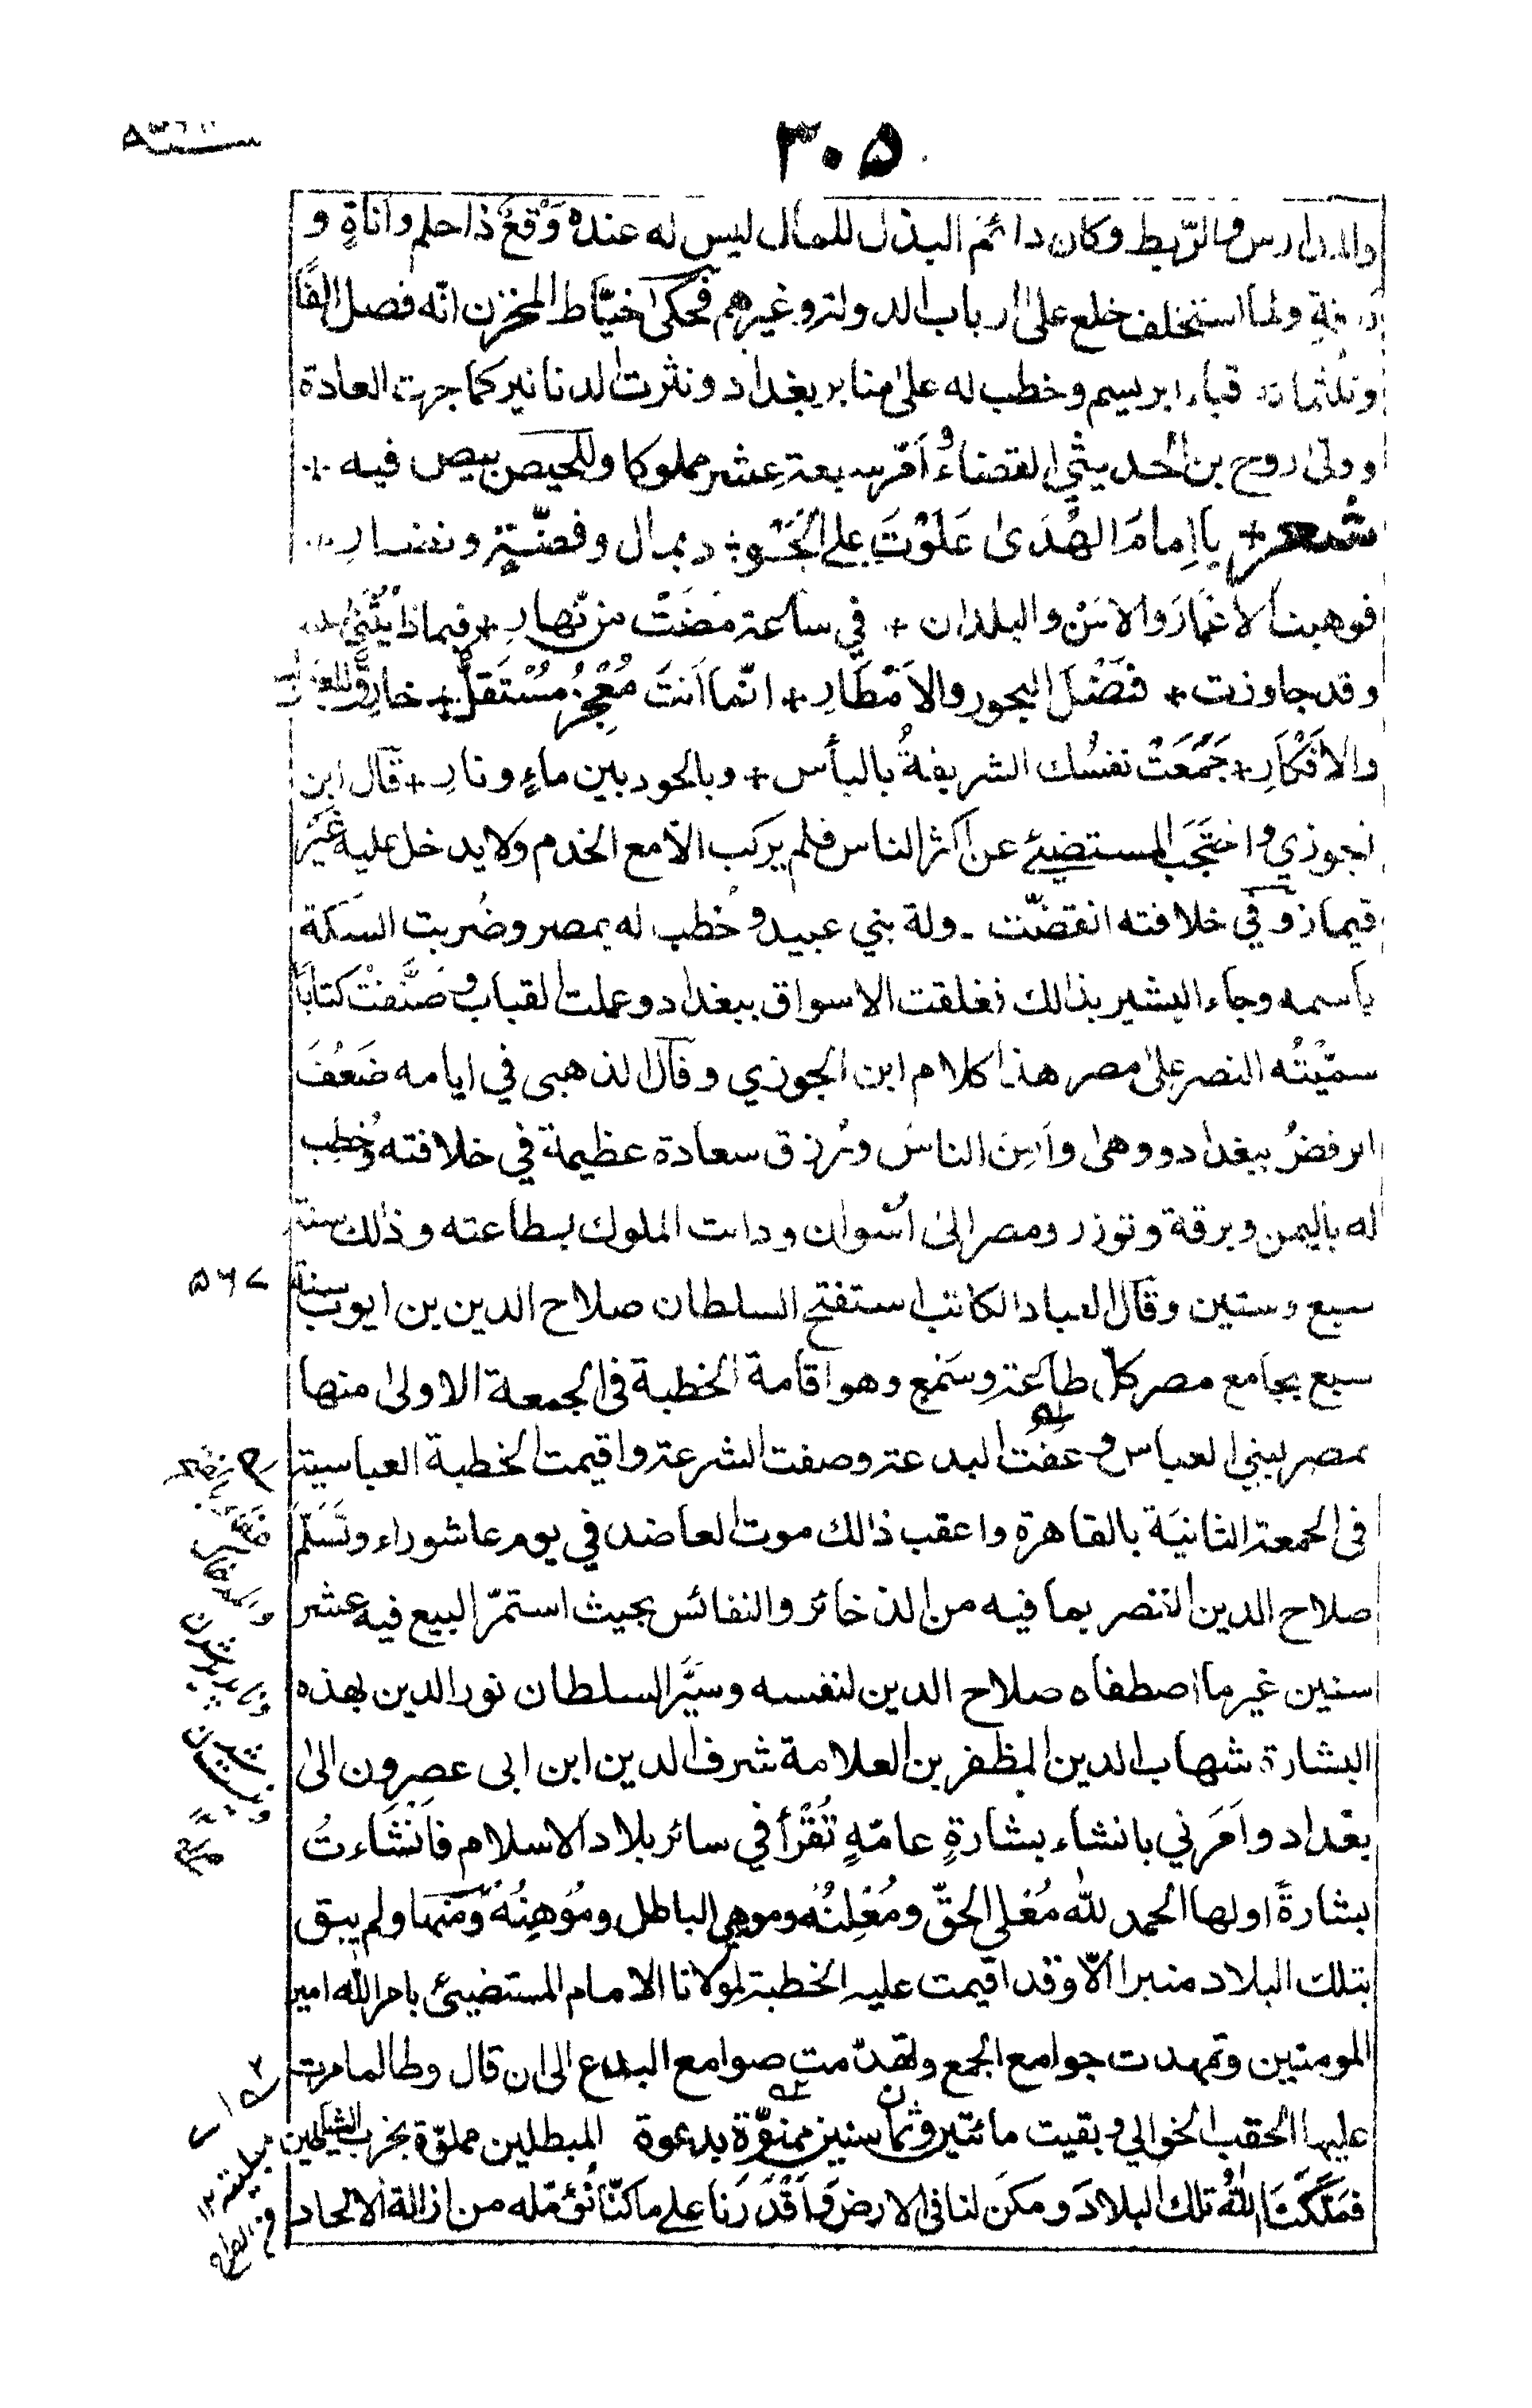 ٣٠۵
والمدارس والرّبط وكان دائم البذل للمال ليس له عنده وَقعٌ ذا حلم واناةٍ و
ولما استخلف خلع على ارباب الدولة وغيرهم فحكىٰ خيّاط المخزن انّه فصل الفًا
وثلثمائة قباء ابريسم وخطب له علىٰ منابر بغداد ونثرت الدنانير كما جرت العادة
وولىّ روح بن الحديثي القضاءَ وأمّر سبعة عشر مملوكا وللحيص بيص فيه +
شعر + يا اِمامَ الهُدَىٰ عَلَوْتَ على الجُـ ـو ÷ د بمال وفضّةٍ ونضار
فوهبت الاَعْمَارَ والامْن والبلدان + في ساعة مَضَتْ من نّهارِ + فبماذا يُثْنىٰ
وقد جاوزت + فَضْلَ البحور والاَمْطَارِ + انّما اَنتَ مُعْجِزٌ مُسْتَقِلٌّ + خارِقٌ للعقول
والاَفْكَارِ + جَمَعَتْ نفسُك الشريفةُ بالبأس + وبالجود بين ماءٍ ونارِ + قال ابن
الجوزي واحتَجَبَ المستضيئ عن اكثر الناس فلم يركب الاّ مع الخدم ولا يدخل عليه غَيْرُ
قيماز وفي خلافته انقضّت دولة بني عبيد وخُطب له بمصر وضُربت السكة
باسمه وجاء البشير بذالك فغلقت الاسواق ببغداد وعملت القباب وصَنَّفتْ كتابًا
سمّيْتُه النصر علىٰ مصر هذا كلام ابن الجوزي وقال الذهبى في ايامه ضَعُفَ
الرفضُ ببغداد ووهىٰ واَمِنَ الناسُ ورُزق سعادة عظيمة في خلافته وخُطب
له باليمن وبرقة وتوزر ومصر الىٰ اُسْوان ودانت الملوك بطاعته وذلك سنة
سبع وستين وقال العماد الكاتب استفتح السلطان صلاح الدين بن ايوب سنة
۵۶۷
سبع بجامع مصر كلّ طاعة وسَمْعٍ وهو اقامة الخطبة فى الجمعة الاولىٰ منها
بمصر لبني العباس وعفت البدعة وصفت الشرعة واقيمت الخطبة العباسية
فى الجمعة الثانيَة بالقاهرة واعقب ذالك موت العاضد في يوم عاشوراء وتَسَلّمَ
صلاح الدين القصر بما فيه من الذخائر والنفائس بحيث استمرّ البيع فيه عشر
سنين غير ما اصطفاه صلاح الدين لنفسه وسَيَّر السلطان نور الدين بهذه
البشارة شهاب الدين المظفر بن العلامة شرف الدين ابن ابى عصرون الىٰ
بغداد واَمَرَني بانشاء بشارةٍ عامّةٍ تُقْرأ في سائر بلاد الاسلام فاَنْشَاءتُ
بشارةً اولها الحمد للّٰه مُعْلى الحقّ ومُعْلِنُه وموهي الباطل ومُوهِنُه ومنها ولم يبق
بتلك البلاد منبر الاّ وقد اقيمت عليه الخطبة لمولانا الامام المستضيئ بامر اللّٰه امير
المومنين وتمهدت جوامع الجمع وتهدّمت صوامع البدع الى ان قال وطالما مرت
عليها الحقب الخوالي وبقيت مائتين وثمان سنين ممنوّة بدعوة المبطلين مملوّة بحزب الشياطين
فمَلَّكَنا اللّٰهُ تلك البلادَ ومكنَ لنا فى الارض وَاَقْدَرَنا على ما كنّا نُؤَمّله من ازالة الالحاد